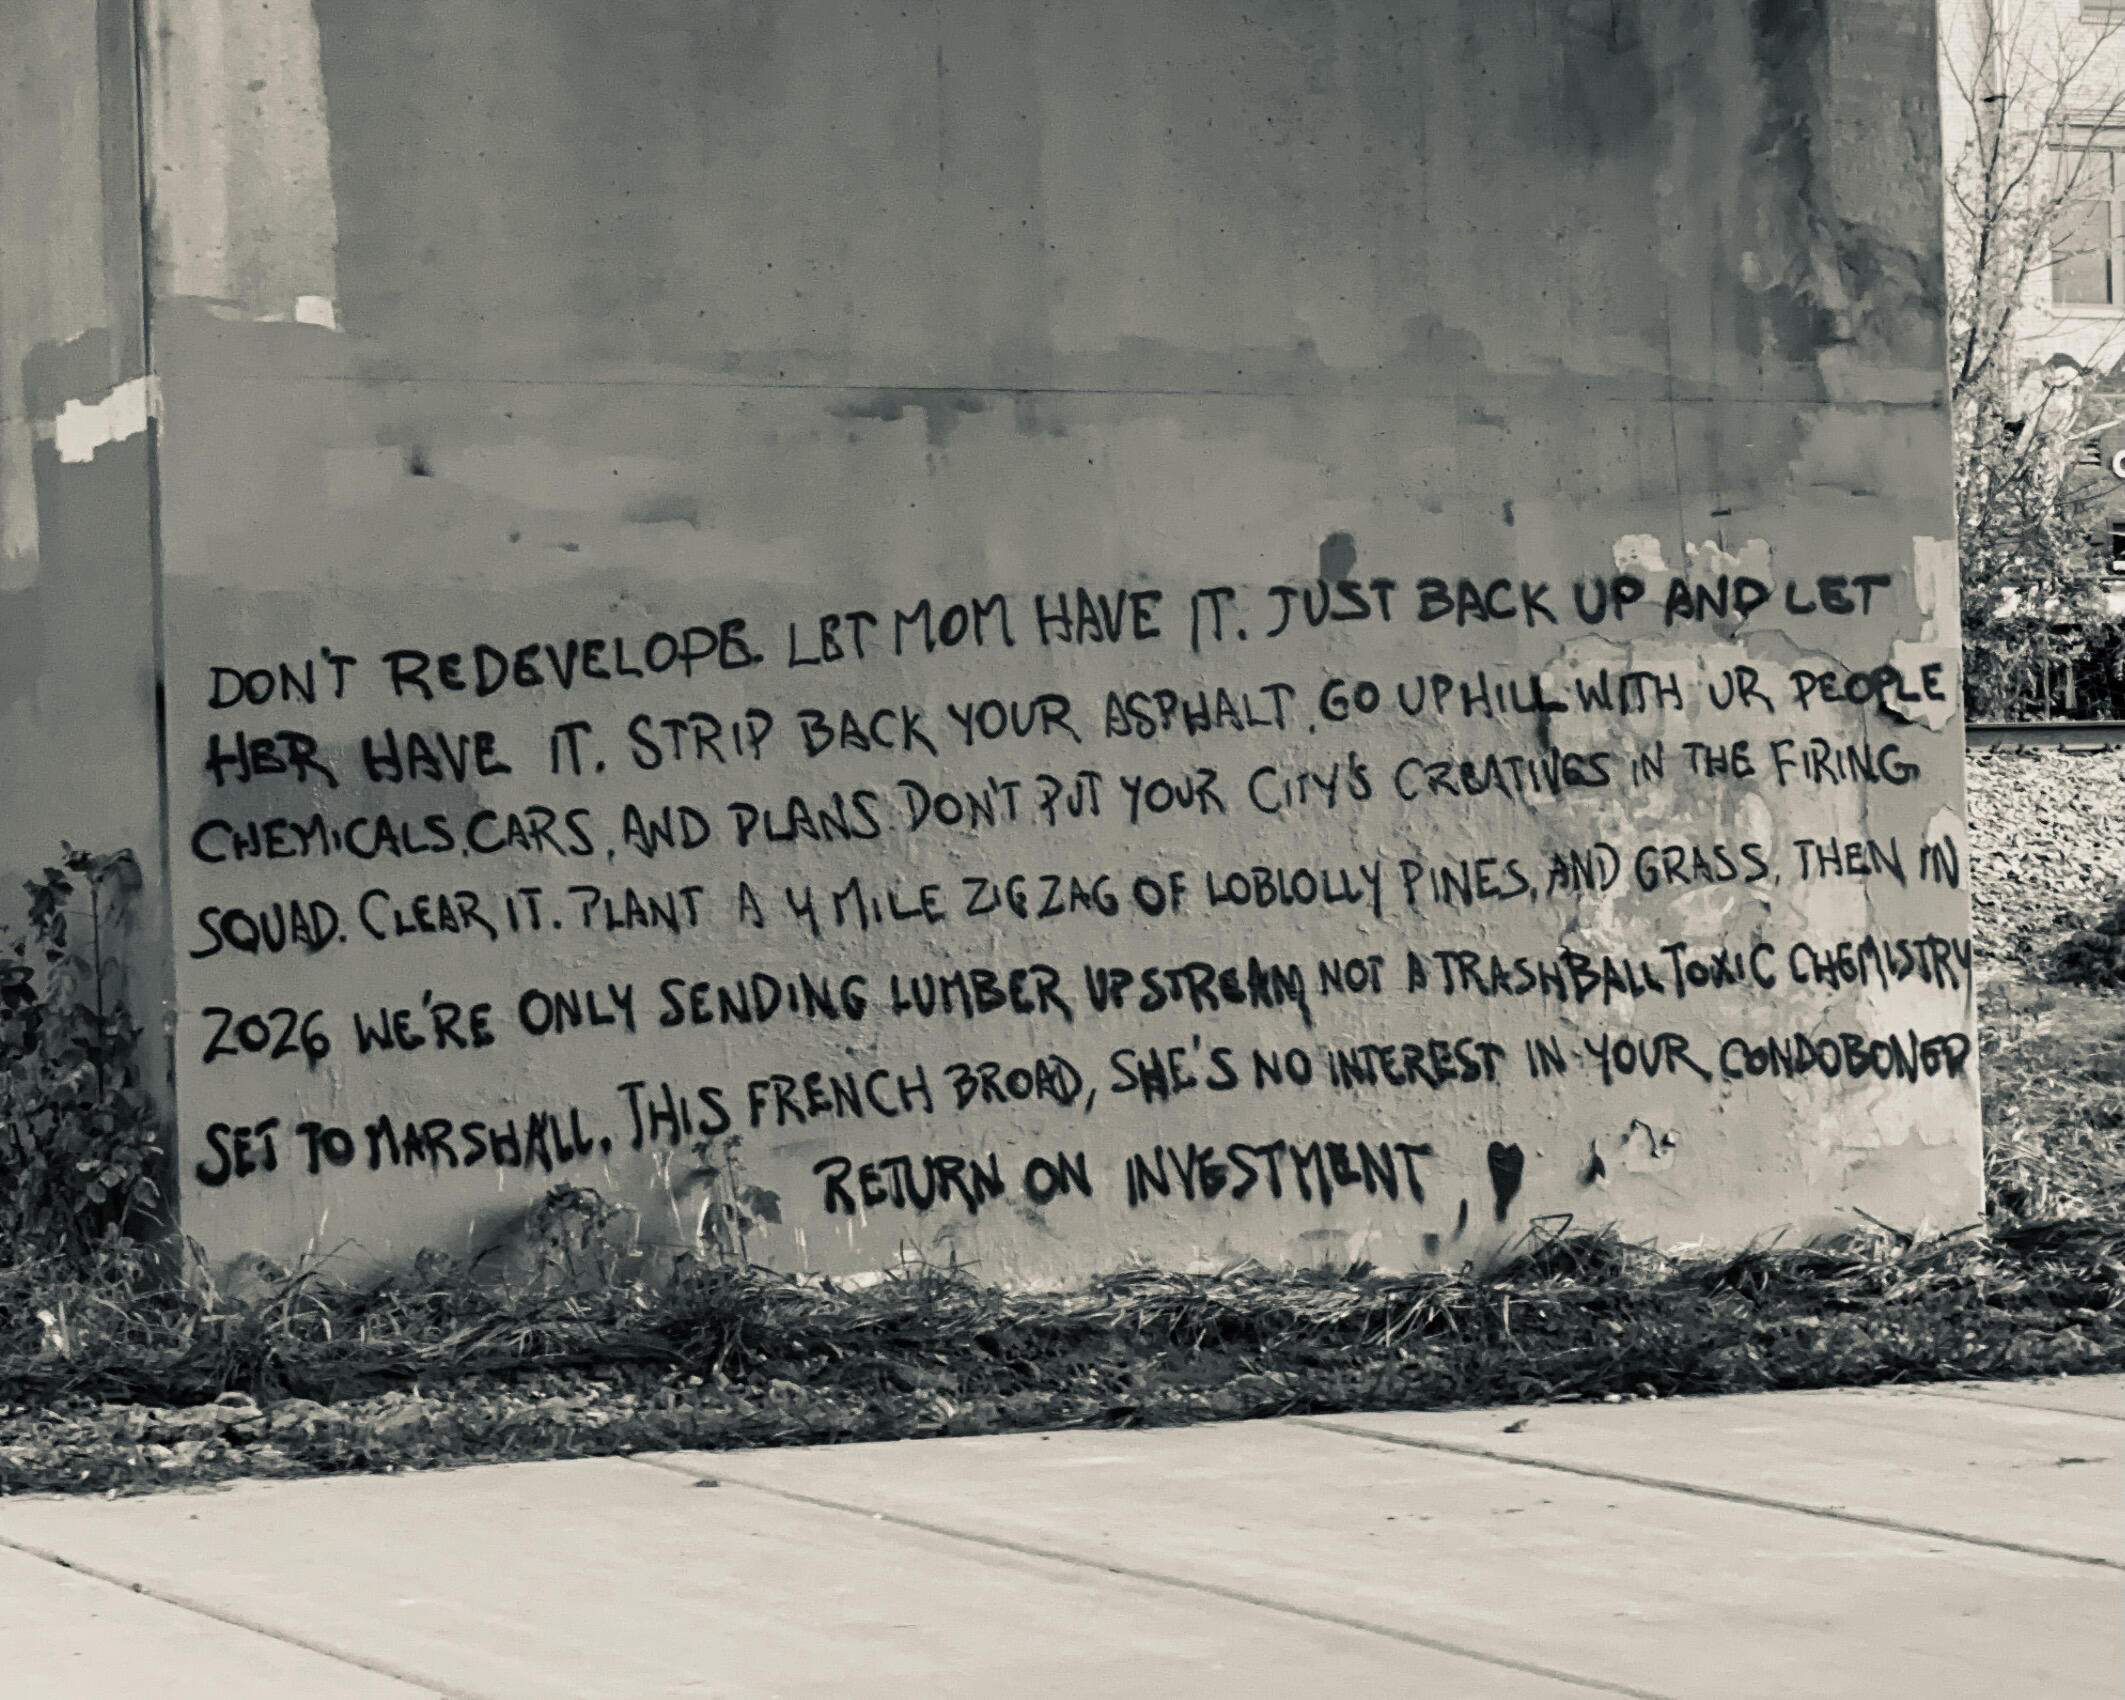 DON'T REDEVELOPE. LET MOM HAVE IT. JUST BACK UP AND LET
HER HAVE IT. STRIP BACK YOUR ASPHALT, GO UPHILL WITH UR PEOPLE
CHEMICALS, CARS, AND PLANS. DON'T PUT YOUR CITY'S CREATIVES IN THE FIRING
SQUAD. CLEAR IT. PLANT A 4 MILE ZIGZAG OF LOBLOLLY PINES, AND GRASS, THEN IN
2026 WE'RE ONLY SENDING LUMBER UPSTREAM, NOT A TRASHBALL TOXIC CHEMISTRY
SET TO MARSHALL. THIS FRENCH BROAD, SHE'S NO INTEREST IN YOUR CONDOBONER
RETURN ON INVESTMENT, ♥